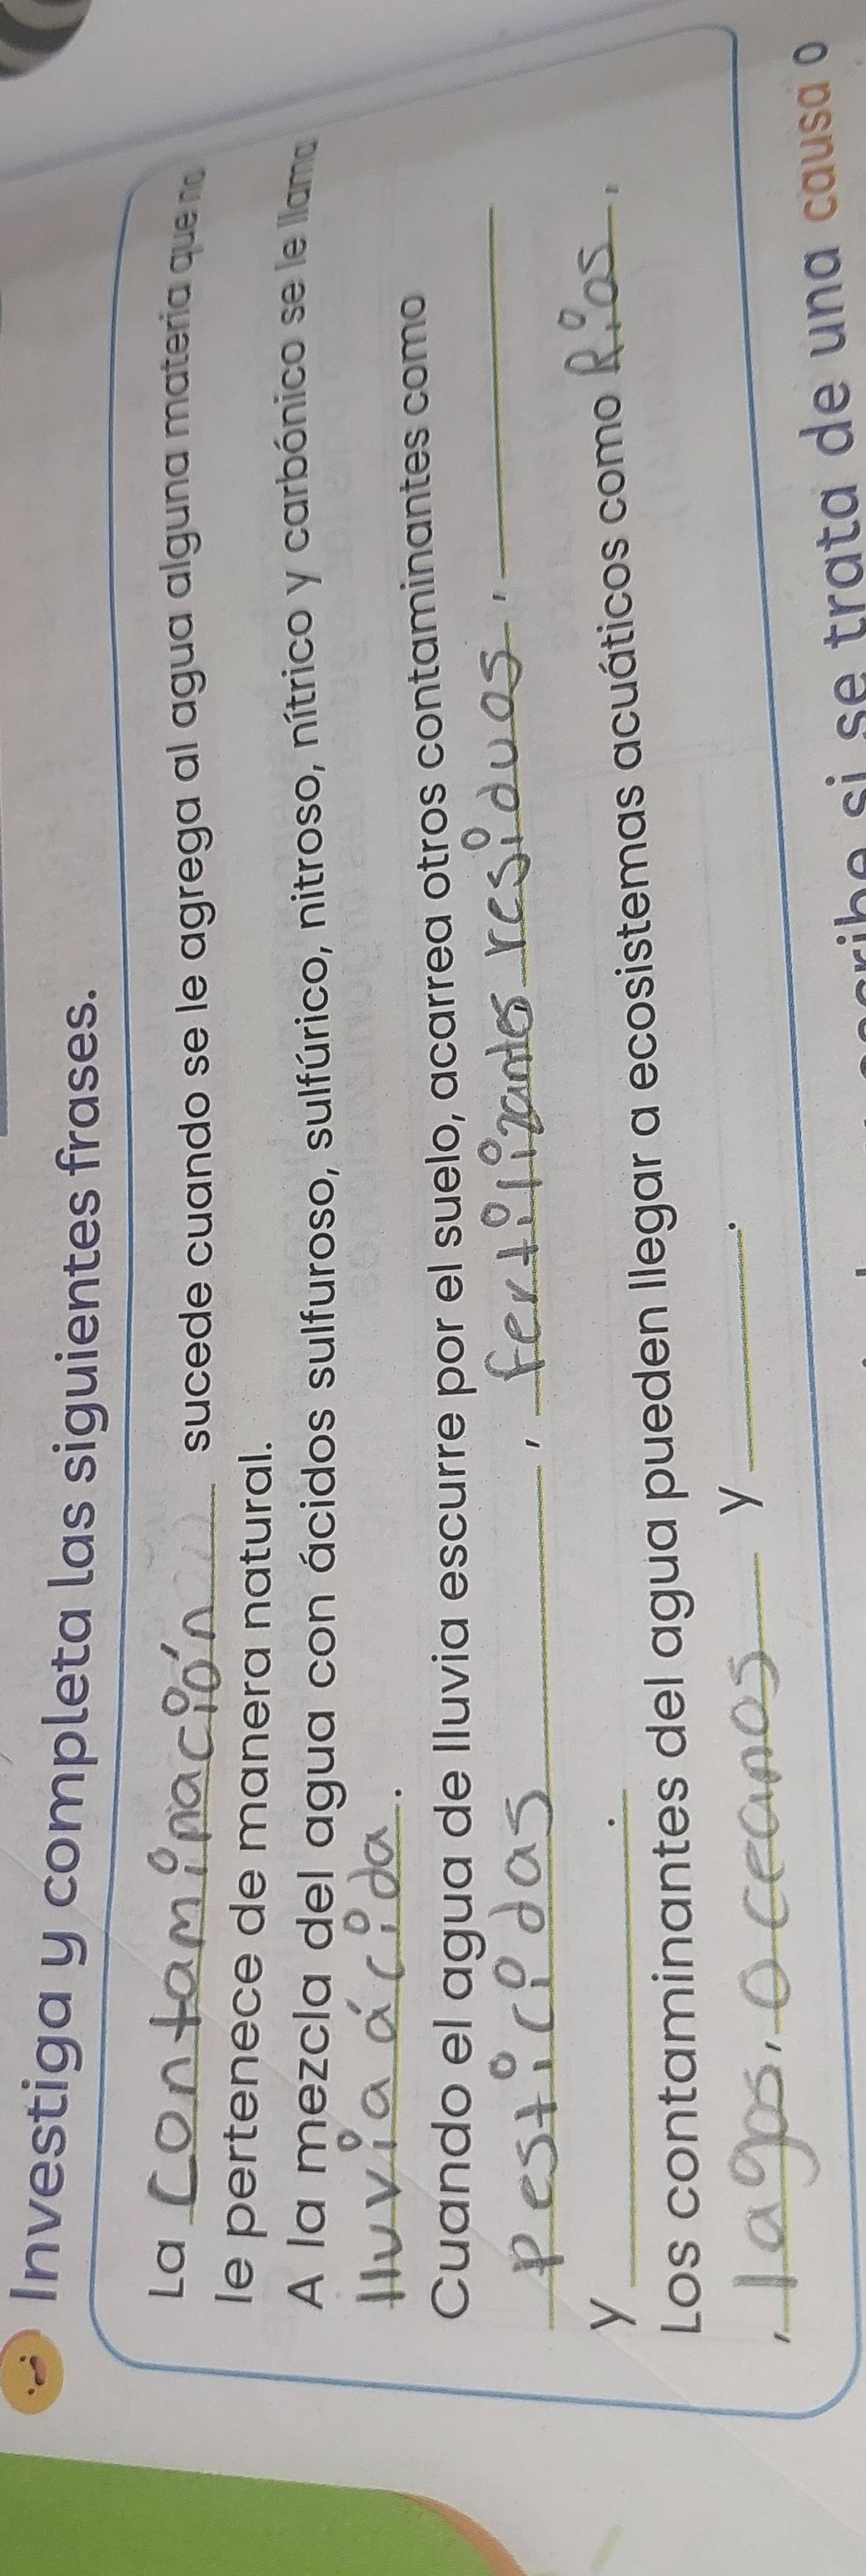 Investiga y completa las siguientes frases.
La Contaminación sucede cuando se le agrega al agua alguna materia que no
le pertenece de manera natural.
A la mezcla del agua con ácidos sulfuroso, sulfúrico, nitroso, nítrico y carbónico se le llama
lluvia ácida.
Cuando el agua de lluvia escurre por el suelo, acarrea otros contaminantes como
pesticidas, fertilizantes residuos,
y .
Los contaminantes del agua pueden llegar a ecosistemas acuáticos como Rios,
, lagos, oceanos y .
si se trata de una causa o